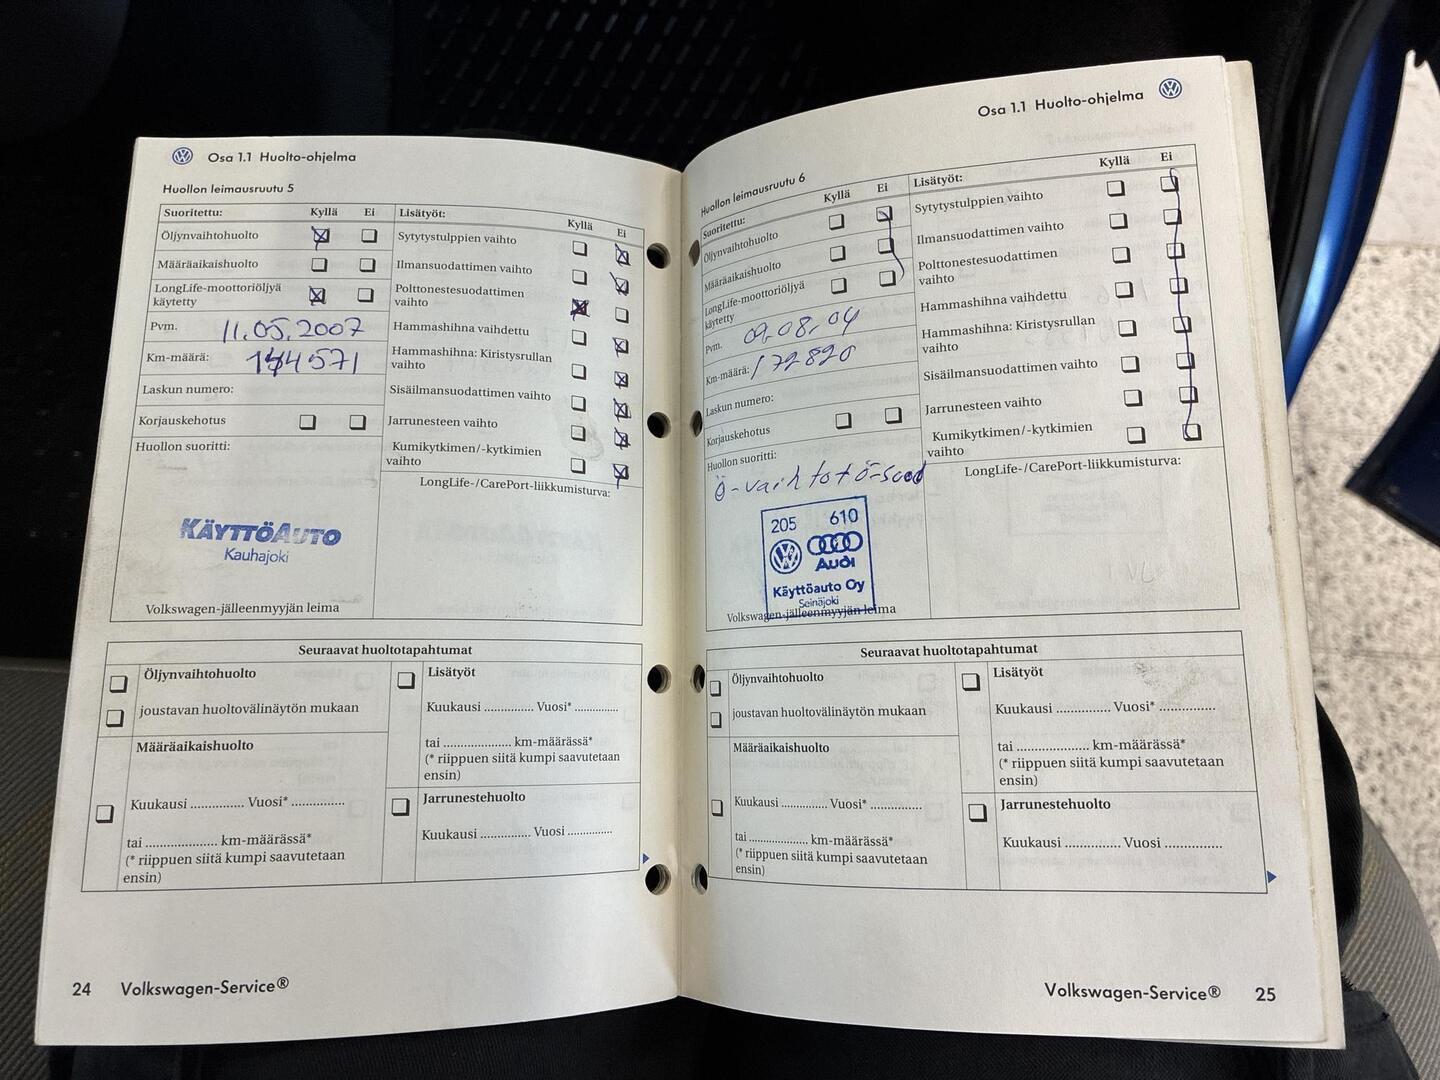 Osa 1.1 Huolto-ohjelma
Huollon leimausruutu 5
Suoritettu: Kyllä Ei
Öljynvaihtohuolto
Määräaikaishuolto
LongLife-moottoriöljyä
käytetty
Pvm. 11.05.2007
Km-määrä: 144571
Laskun numero:
Korjauskehotus
Huollon suoritti:
KÄYTTÖAUTO
Kauhajoki
Volkswagen-jälleenmyyjän leima
Lisätyöt:
Kyllä Ei
Sytytystulppien vaihto
Ilmansuodattimen vaihto
Polttonestesuodattimen
vaihto
Hammashihna vaihdettu
Hammashihna: Kiristysrullan
vaihto
Sisäilmansuodattimen vaihto
Jarrunesteen vaihto
Kumikytkimen/-kytkimien
vaihto
LongLife-/CarePort-liikkumisturva:
Seuraavat huoltotapahtumat
Öljynvaihtohuolto
joustavan huoltovälinäytön mukaan
Määräaikaishuolto
Kuukausi ............... Vuosi* ...............
tai .................... km-määrässä*
(* riippuen siitä kumpi saavutetaan
ensin)
Lisätyöt
Kuukausi ............... Vuosi* ............
tai .................... km-määrässä*
(* riippuen siitä kumpi saavutetaan
ensin)
Jarrunestehuolto
Kuukausi ............... Vuosi .............
24 Volkswagen-Service®
Osa 1.1 Huolto-ohjelma
Huollon leimausruutu 6
Suoritettu: Kyllä Ei
Öljynvaihtohuolto
Määräaikaishuolto
LongLife-moottoriöljyä
käytetty
Pvm. 09.08.04
Km-määrä: 172820
Laskun numero:
Korjauskehotus
Huollon suoritti:
Ö-vaihto + ö-suod
205 610
Audi
Käyttöauto Oy
Seinäjoki
Volkswagen-jälleenmyyjän leima
Lisätyöt: Kyllä Ei
Sytytystulppien vaihto
Ilmansuodattimen vaihto
Polttonestesuodattimen
vaihto
Hammashihna vaihdettu
Hammashihna: Kiristysrullan
vaihto
Sisäilmansuodattimen vaihto
Jarrunesteen vaihto
Kumikytkimen/-kytkimien
vaihto
LongLife-/CarePort-liikkumisturva:
Seuraavat huoltotapahtumat
Öljynvaihtohuolto
joustavan huoltovälinäytön mukaan
Määräaikaishuolto
Kuukausi ............. Vuosi* ..............
tai .................... km-määrässä*
(* riippuen siitä kumpi saavutetaan
ensin)
Lisätyöt
Kuukausi ............... Vuosi* ...............
tai .................... km-määrässä*
(* riippuen siitä kumpi saavutetaan
ensin)
Jarrunestehuolto
Kuukausi ............... Vuosi ................
Volkswagen-Service® 25